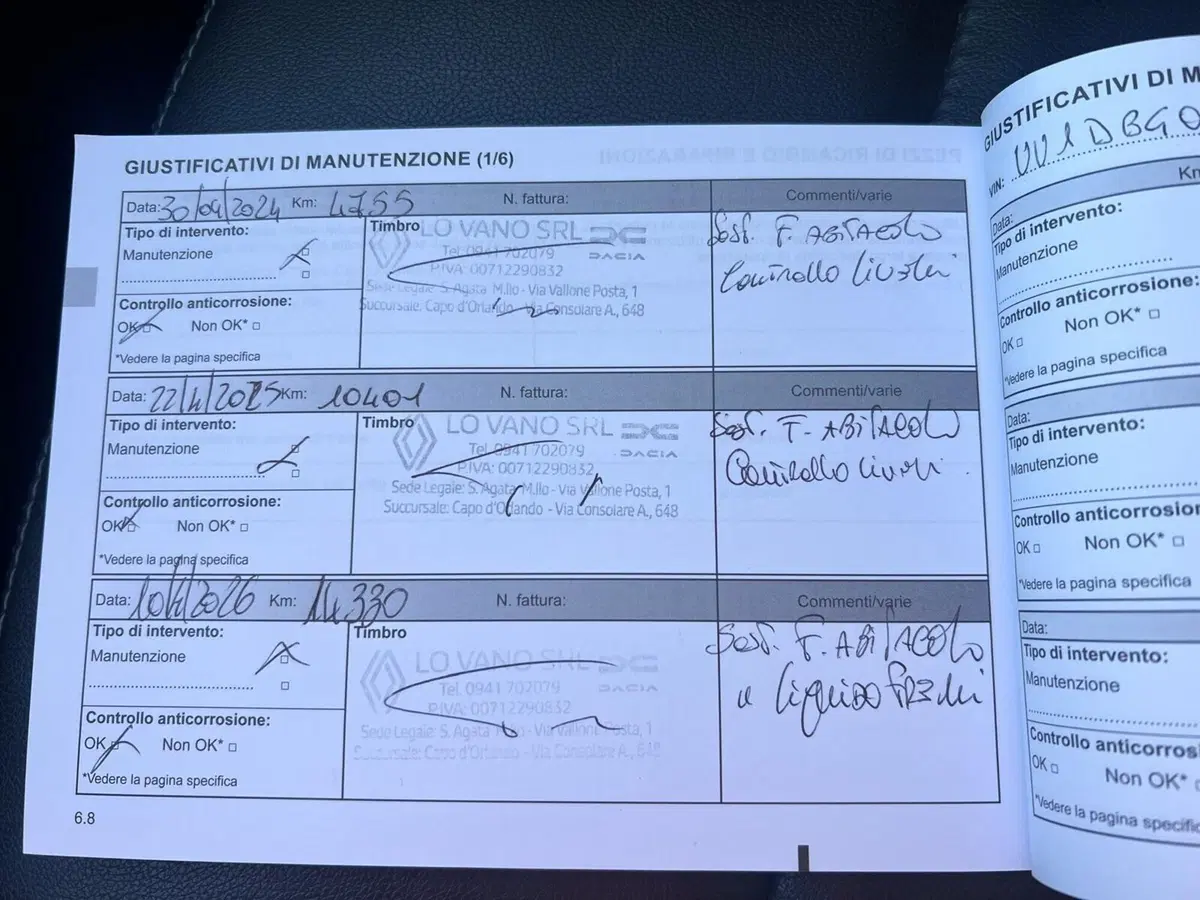 GIUSTIFICATIVI DI MANUTENZIONE (1/6)
Data: 30/04/2024 Km: 4755 N. fattura: Commenti/varie
Tipo di intervento:
Manutenzione
Controllo anticorrosione:
OK Non OK*
*Vedere la pagina specifica
Timbro LO VANO SRL
DACIA
Tel. 0941 702079
P.IVA: 00712290832
Sede Legale: S. Agata M.llo - Via Vallone Posta, 1
Succursale: Capo d'Orlando - Via Consolare A., 648
Sost. F. ABITACOLO
Controllo livelli
Data: 22/4/2025 Km: 10401 N. fattura: Commenti/varie
Tipo di intervento:
Manutenzione
Controllo anticorrosione:
OK Non OK*
*Vedere la pagina specifica
Timbro LO VANO SRL
DACIA
Tel. 0941 702079
P.IVA: 00712290832
Sede Legale: S. Agata M.llo - Via Vallone Posta, 1
Succursale: Capo d'Orlando - Via Consolare A., 648
Sost. F. ABITACOLO
Controllo livelli
Data: 10/4/2026 Km: 14330 N. fattura: Commenti/varie
Tipo di intervento:
Manutenzione
Controllo anticorrosione:
OK Non OK*
*Vedere la pagina specifica
Timbro
LO VANO SRL
DACIA
Tel. 0941 702079
P.IVA: 00712290832
Sede Legale: S. Agata M.llo - Via Vallone Posta, 1
Succursale: Capo d'Orlando - Via Consolare A., 648
Sost. F. ABITACOLO
e liquido FRENI
6.8
GIUSTIFICATIVI DI M
VIN:
Data: Km
Tipo di intervento:
Manutenzione
Controllo anticorrosione:
OK Non OK*
*Vedere la pagina specifica
Data:
Tipo di intervento:
Manutenzione
Controllo anticorrosion
OK Non OK*
*Vedere la pagina specifica
Data:
Tipo di intervento:
Manutenzione
Controllo anticorros
OK Non OK*
*Vedere la pagina specific